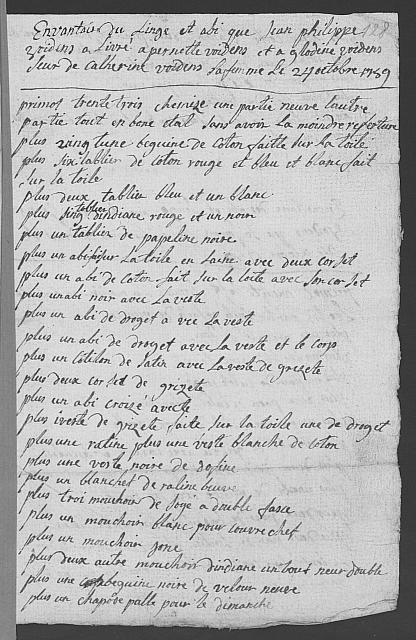 Envantaire du Linge et abi que jean philippe 128
voidens a Livré a pernette voidens et a Clodine voidens
seur de catherine voidens sa femme Le 24 octobre 1789
primos trente trois chemise une partie neuve lautre
partie tout en bone etat sans avoir la moindre
plus vingt une beguine de coton faitte sur la toile
plus six tablier de coton rouge et bleu et blanc fait
sur la toile
plus deux tablier bleu et un blanc
plus sing tablier dindiane rouge et un noir
plus un tablier de papeline noire
plus un abi sur la toile en laine avec deux corset
plus un abi de coton fait sur la toile avec son corset
plus un abi noir avec la veste
plus un abi de droget a vec la veste
plus un abi de droget avec la veste et le corp
plus un cotilon de satin avec la veste de grizete
plus deux corset de grizete
plus un abi croizé avec la
plus veste de grizete faite sur la toile une de droget
plus une ratine plus une veste blanche de coton
plus une veste noire de
plus un blanchet de ratine
plus troi mouchoir de a double face
plus un mouchoir blanc pour couvre chef
plus un mouchoir jone
plus deux autre mouchoir dindiane un tout neuf double
plus une beguine noire de velour neuve
plus un chapô de palle pour le demanche